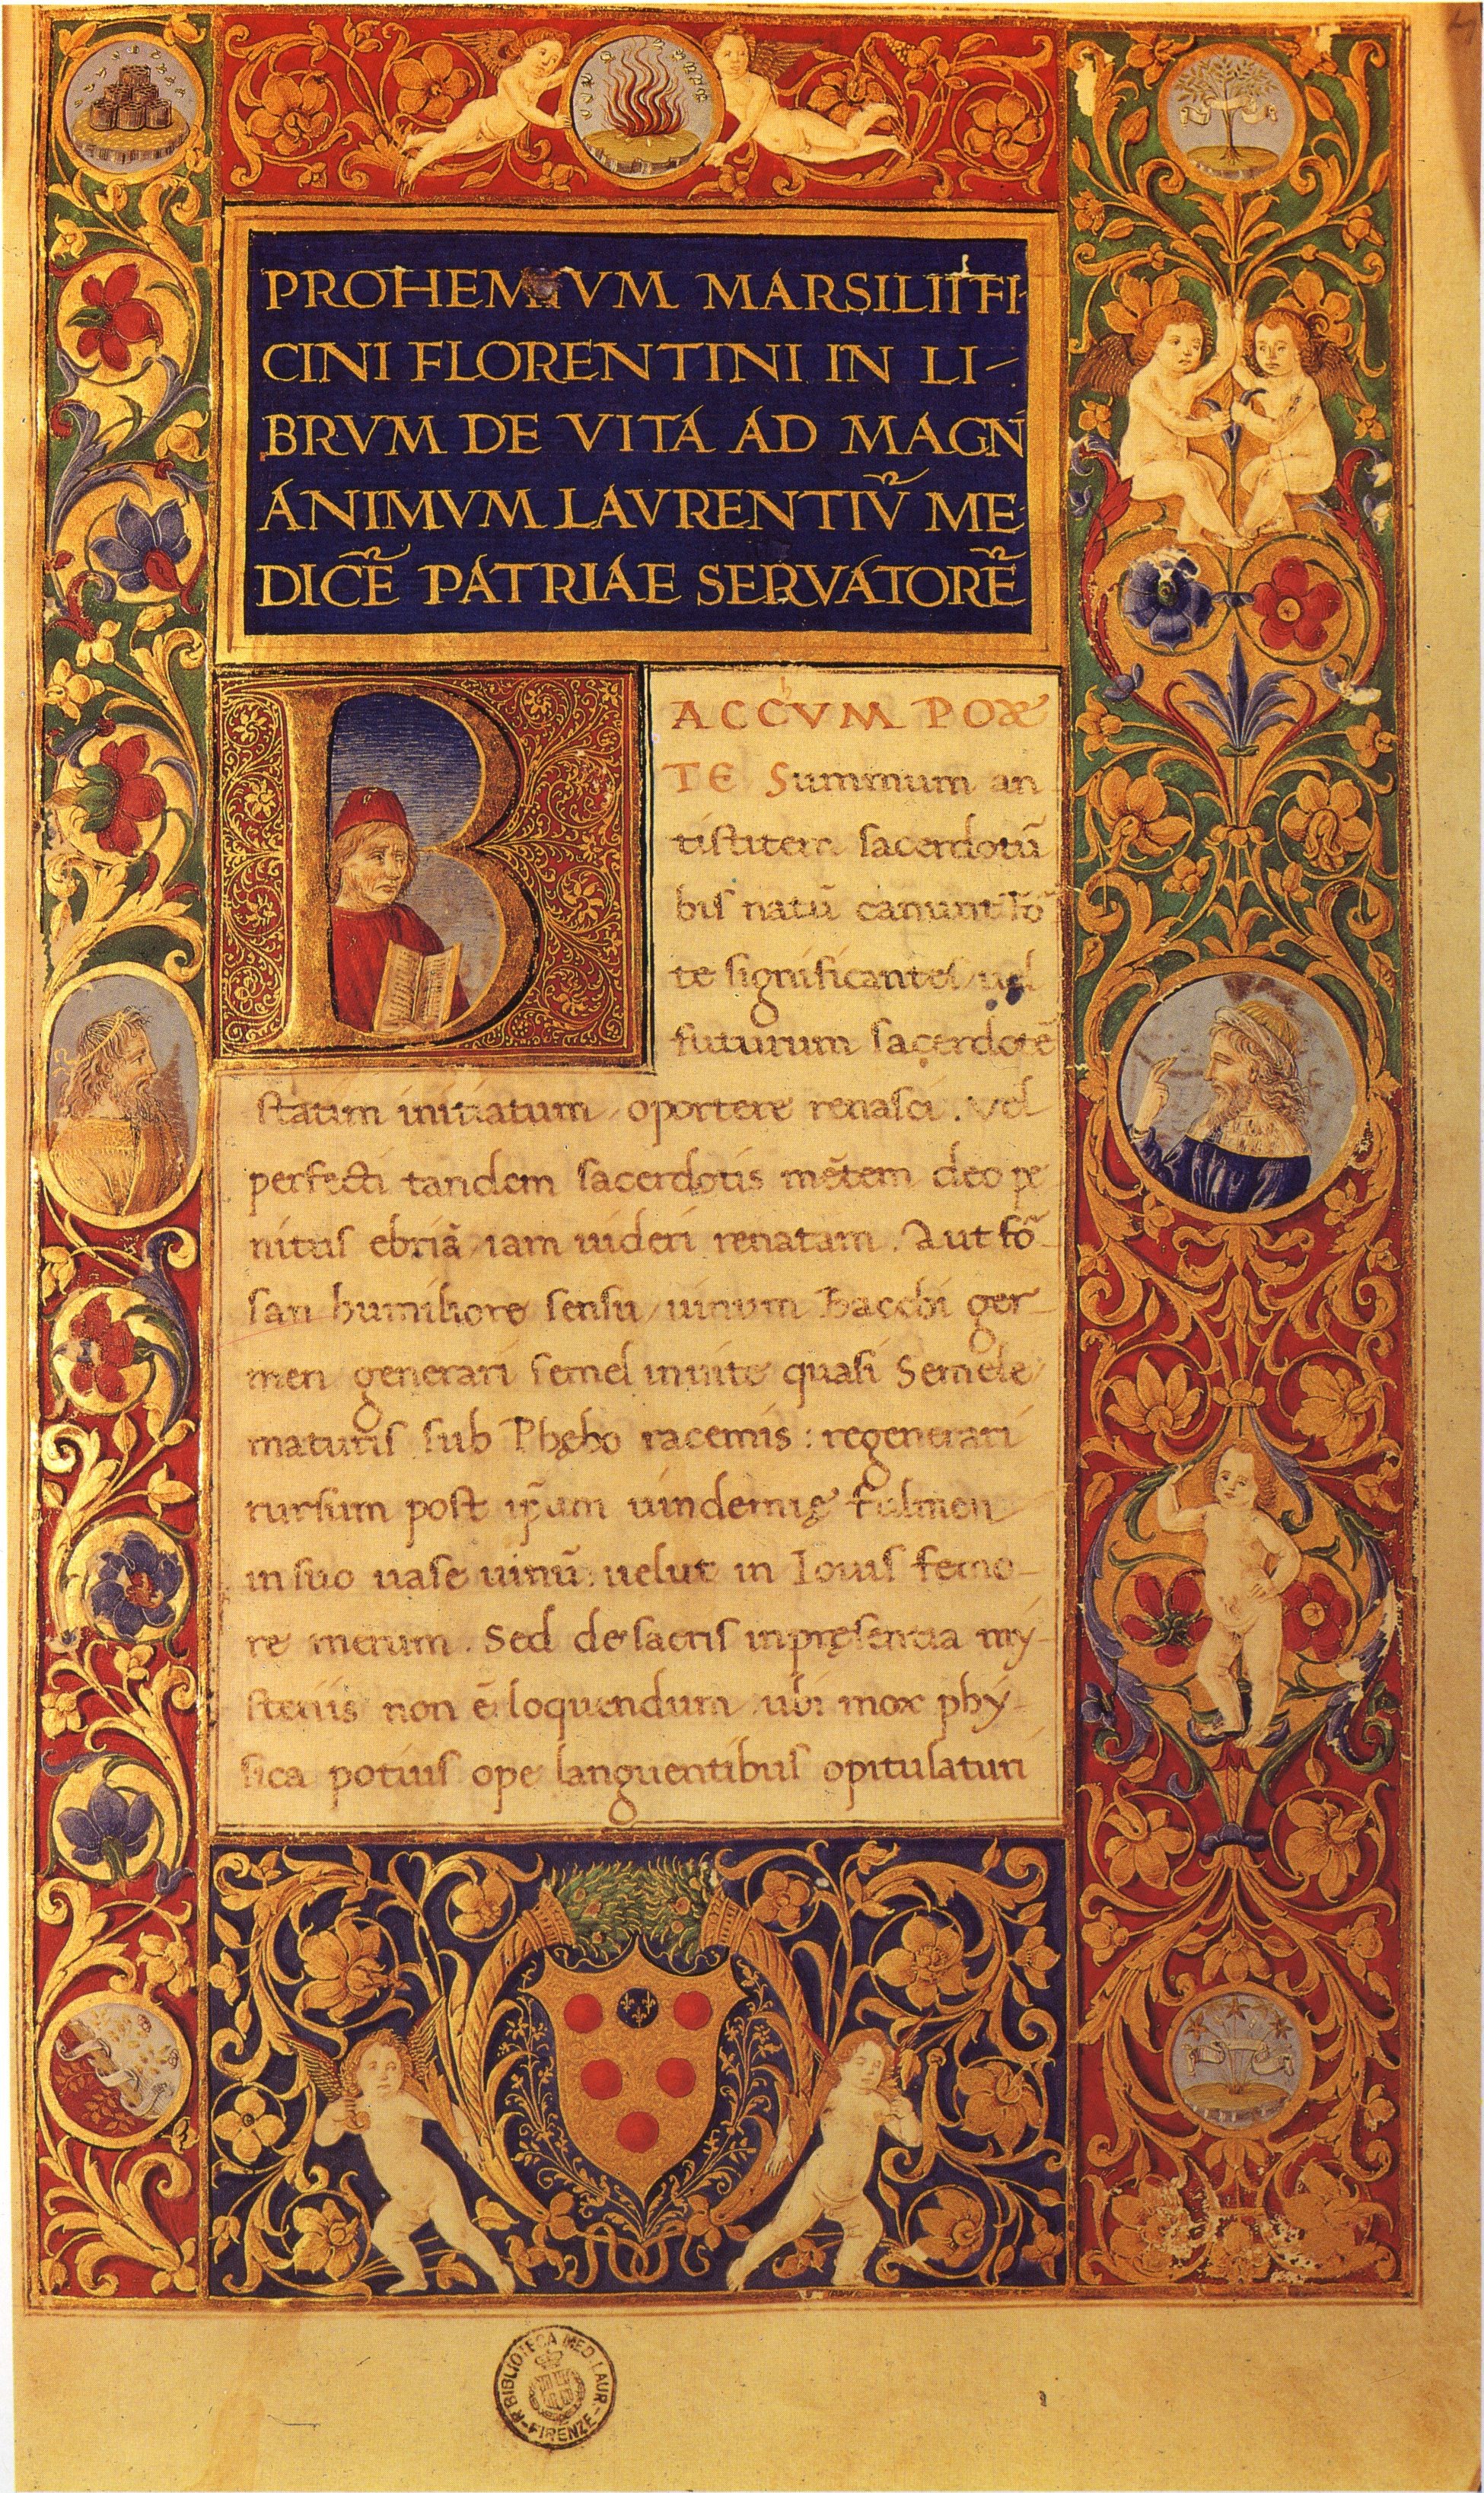 PROHEMIVM MARSILII FI-
CINI FLORENTINI IN LI-
BRVM DE VITA AD MAGN
ANIMVM LAVRENTIŨ ME
DICẼ PATRIAE SERVATORẼ
BACCHVM POE
TE Summum an
tistitem sacerdotũ
bis natũ canunt Fo
te significantes vel
futurum sacerdotẽ
statim initiatum oportere renasci. Vel
perfecti tandem sacerdotis mẽtem deo pe
nitus ebriã iam uideri renatam. Aut fo
san humiliore sensu uinum Bacchi ger-
men generari semel in uite quasi Semele
maturis sub Phębo racemis: regenerari
rursum post ip̃um uindemię Fulmen
in suo uase uinũ: uelut in Iouis femo-
re merum. Sed de sacris in pręsentia mẏ-
steriis non ẽ loquendum ubi mox phẏ-
sica potius ope languentibus opitulaturi
R. BIBLIOTECA MED. LAUR. FIRENZE